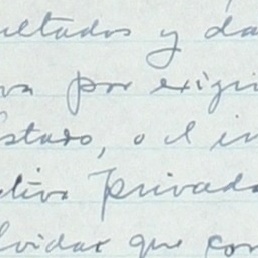 ultados y da
va por exigir
stado, o el in
ativa privada
lvidar que con